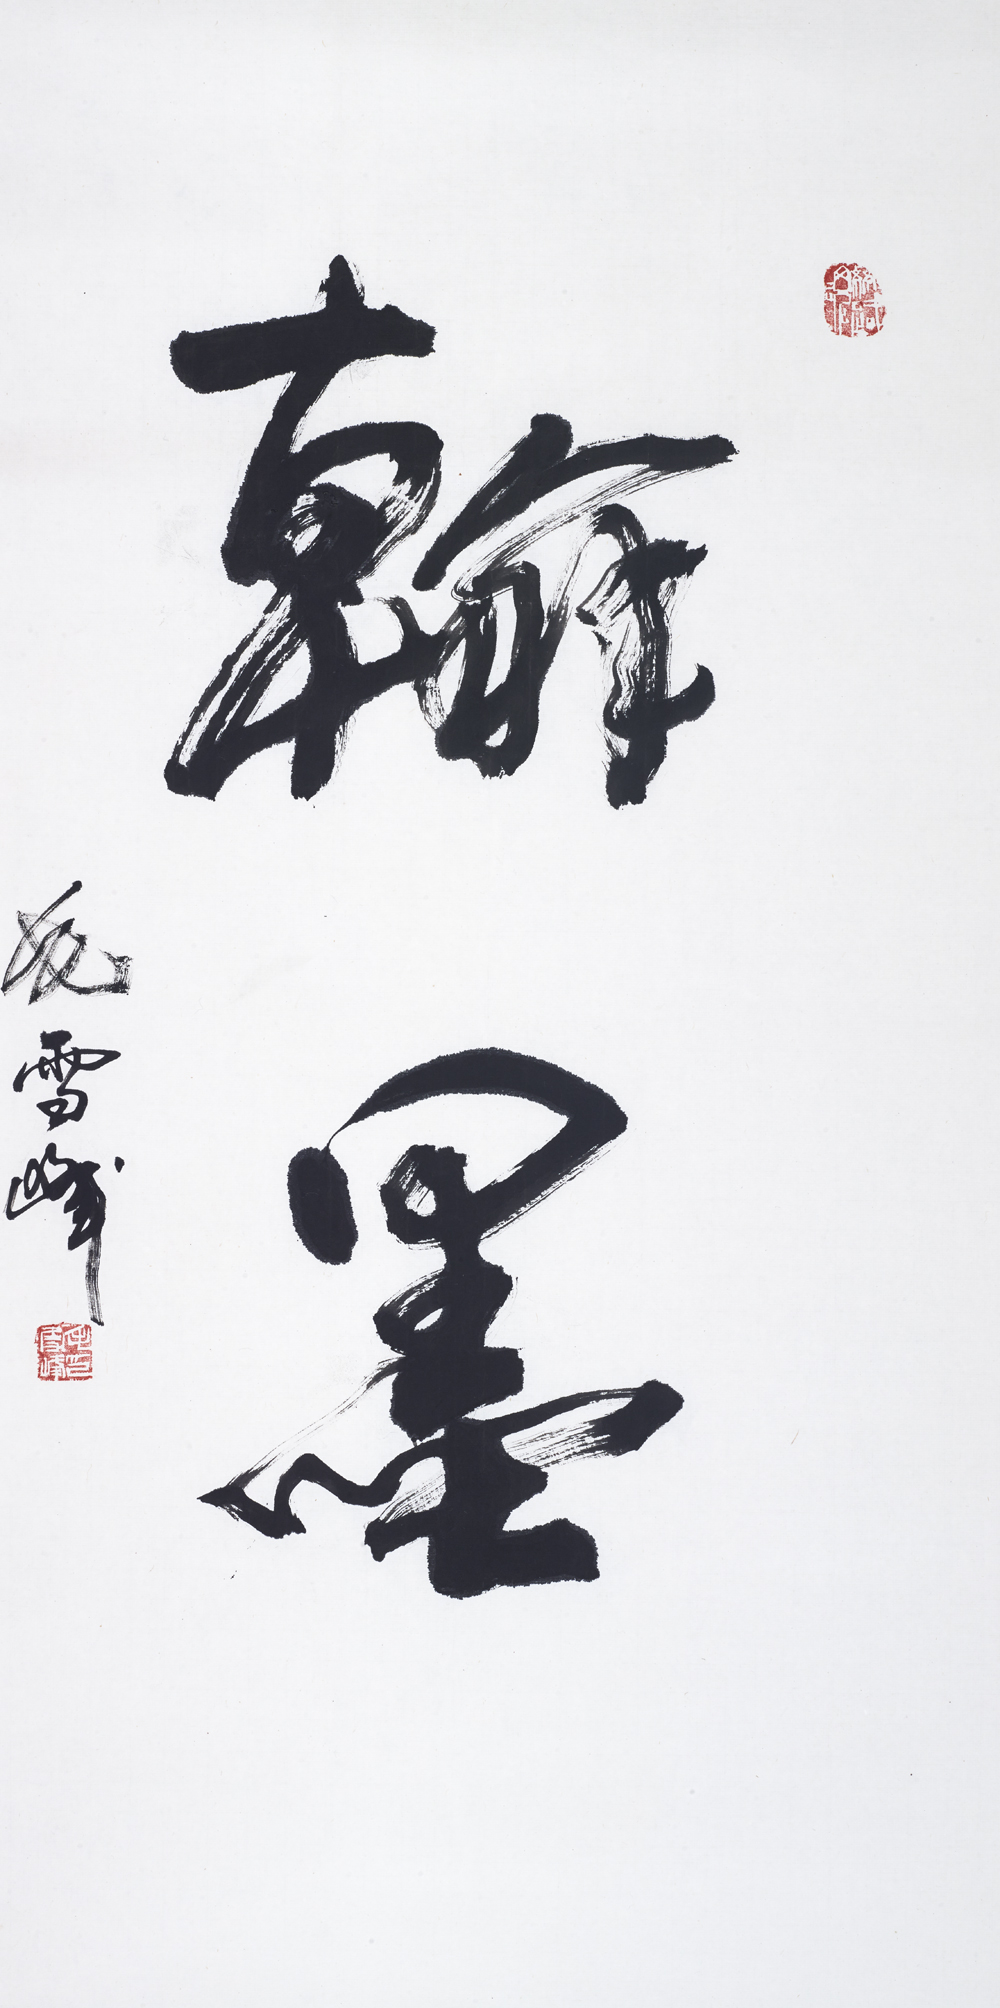 翰墨
雪峰